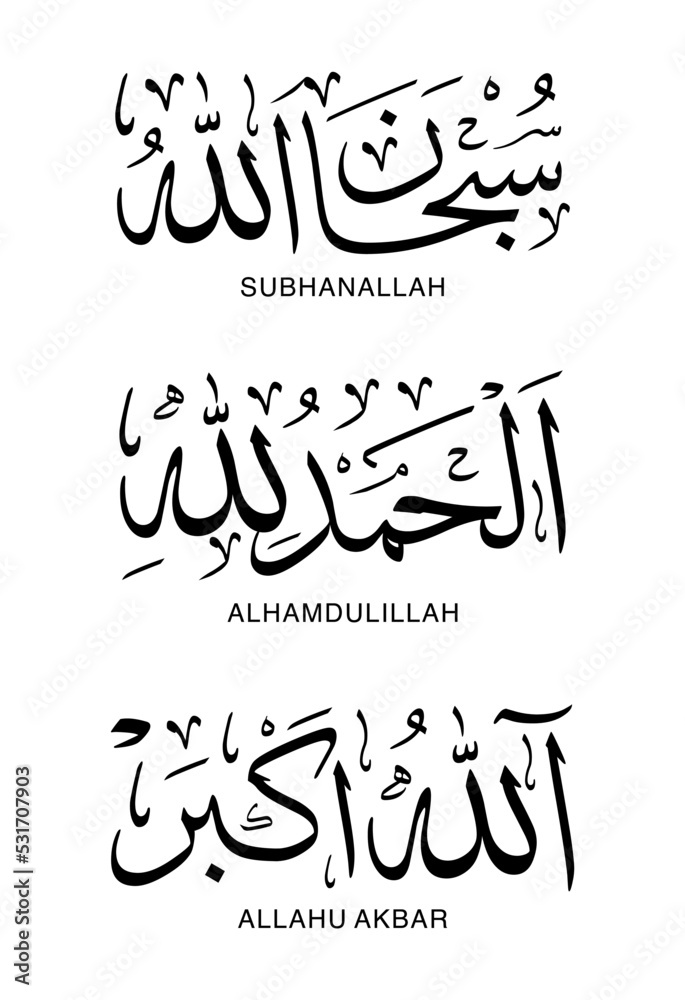 سُبْحَانَ اللهُ
SUBHANALLAH
اَلْحَمْدُ لِلّٰهِ
ALHAMDULILLAH
آللهُ اَكْبَرْ
ALLAHU AKBAR
Adobe Stock | #531707903